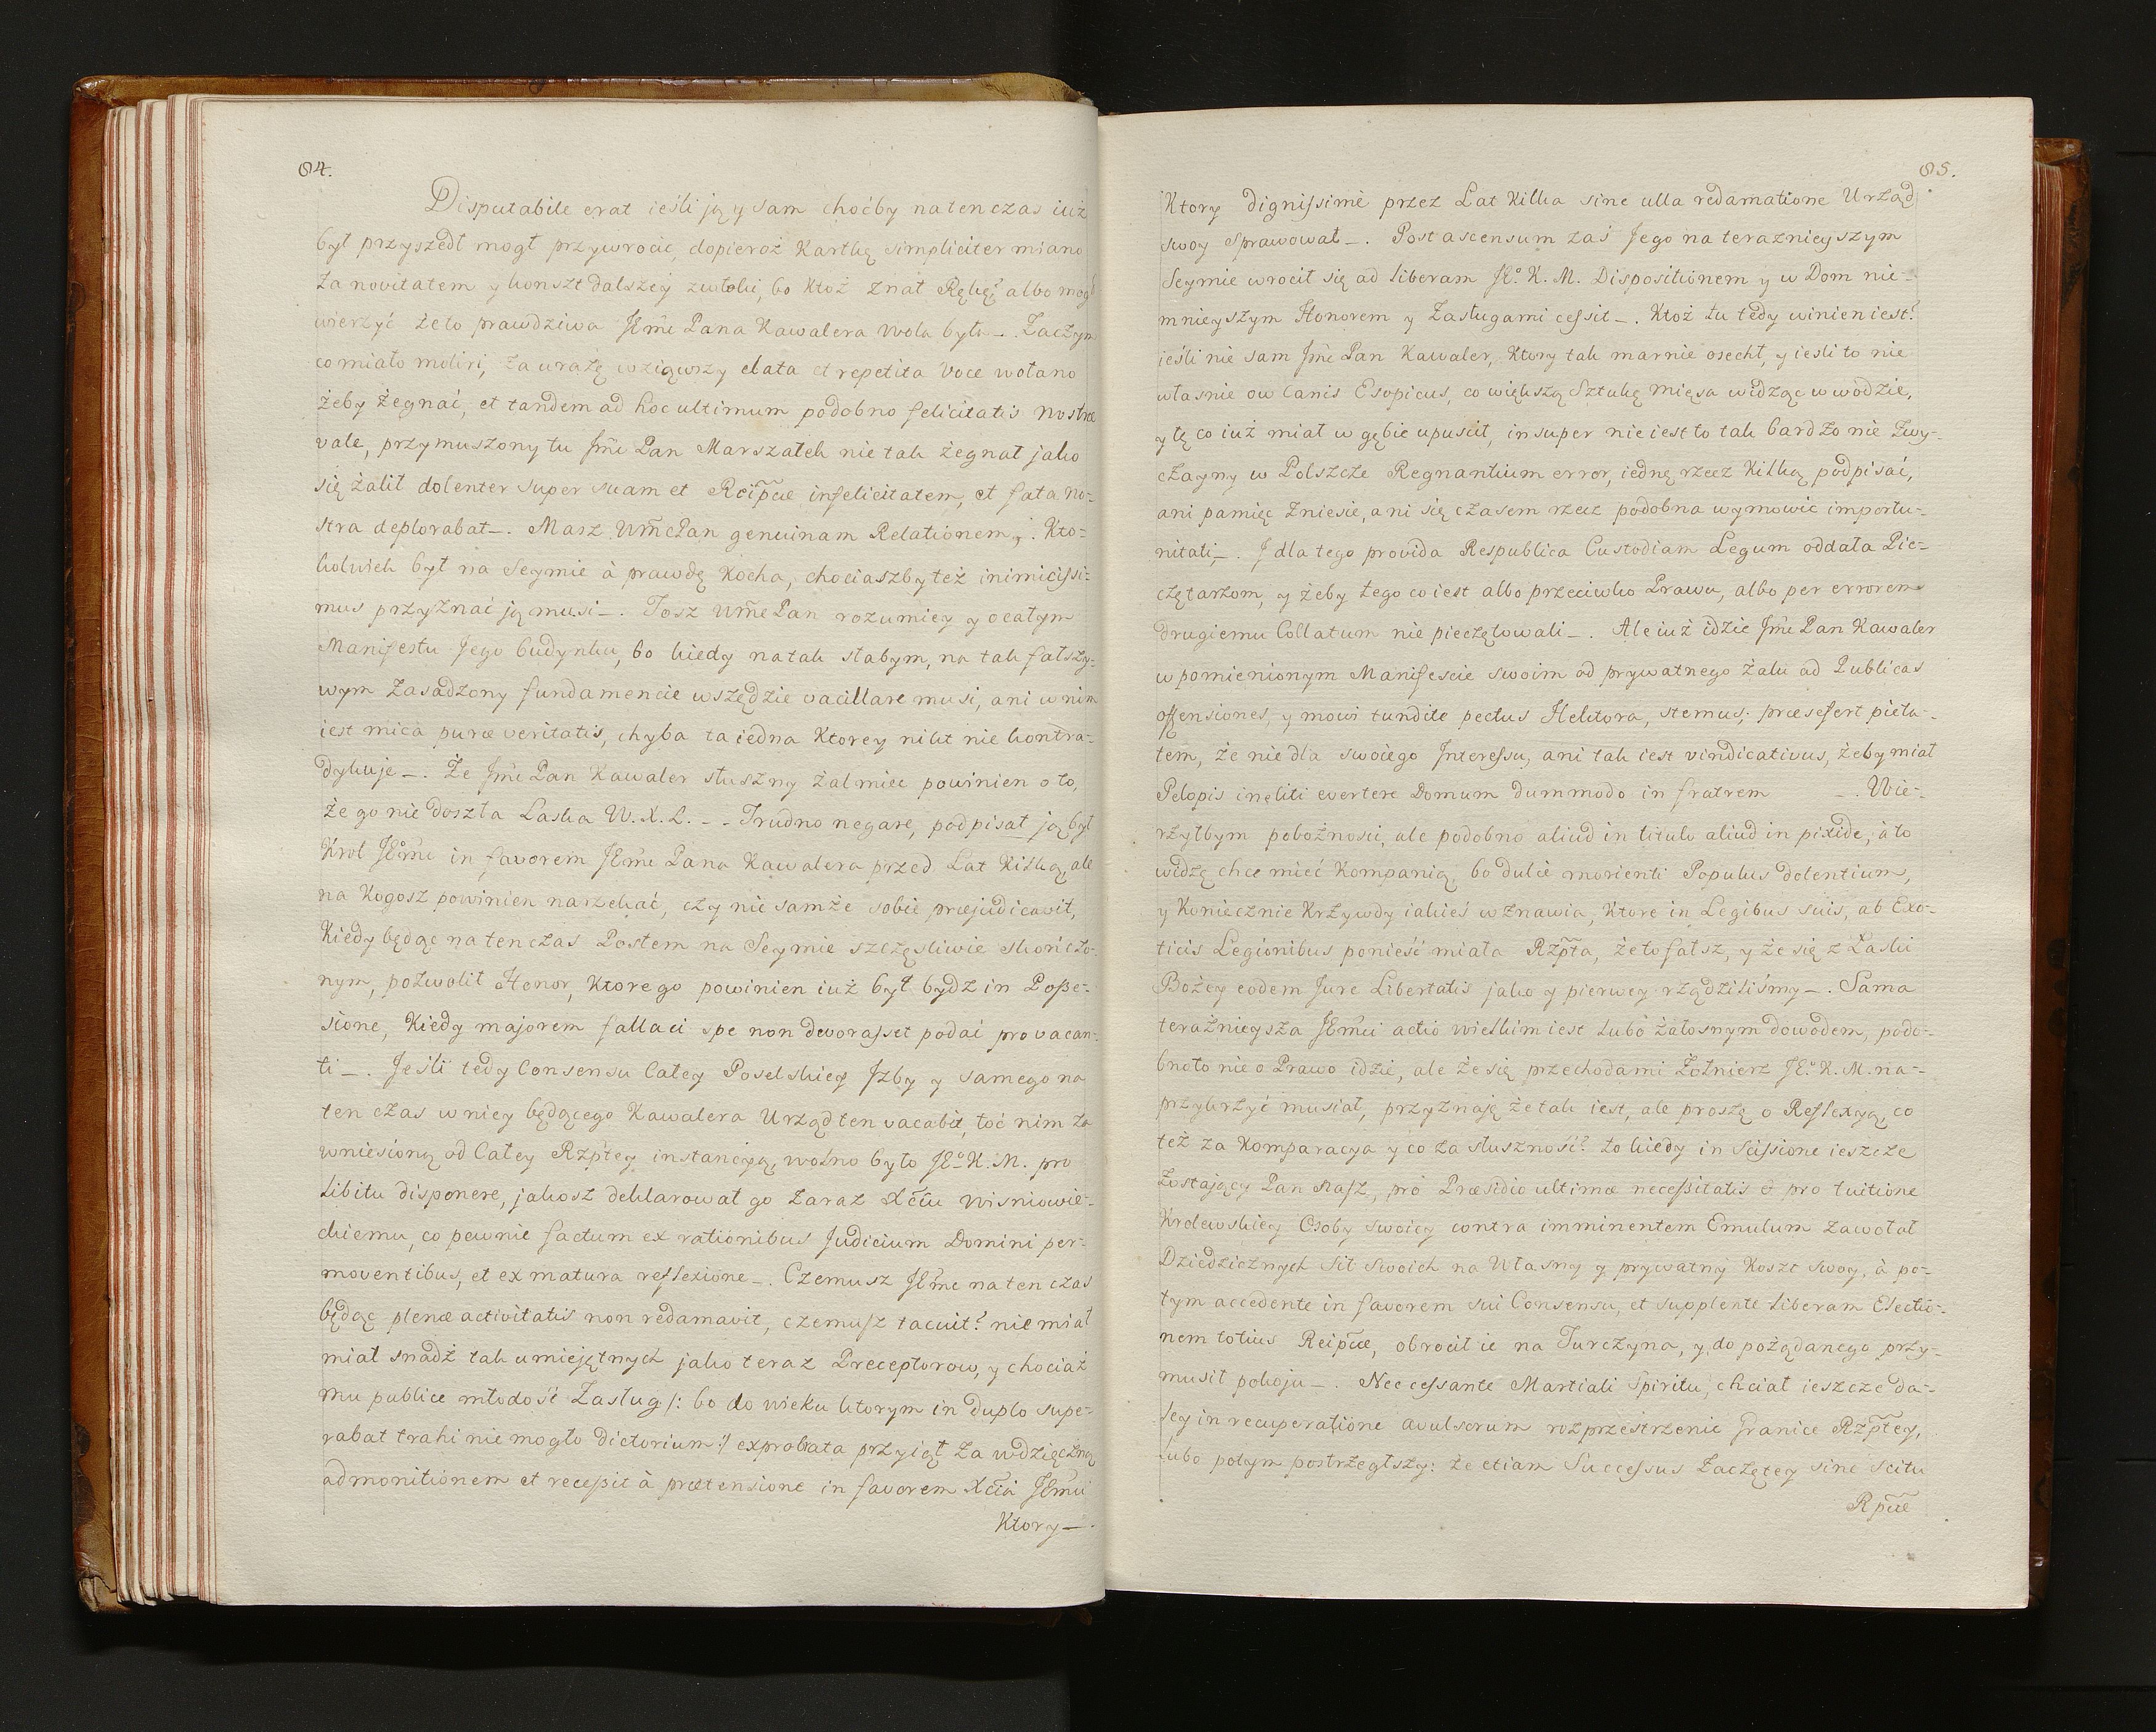 84.
Disputabile erat ieśli ją y sam choćby natenczas iuż
był przyszedł mogł przywrocić, dopieroż Kartkę simpliciter miano
za novitatem y konszt dalszey zwłoki, bo Ktoż znał Rękę? albo mogł
wierzyć że to prawdziwa JEm̃ Pana Kawalera wola była _. Zaczym
co miało moliri, za urazę wziąwszy elata et repetita voce wołano
żeby żegnać, et tandem ad hoc ultimum podobno felicitatis nostræ
vale, przymuszony tu Jm̃ Pan Marszałek nie tak żegnał jako
się żalił dolenter super suam et Reip̃cæ infelicitatem, et fata no-
stra deplorabat _. Masz Wm̃ Pan genuinam Relationem. Kto-
kolwiek był na Seymie à prawdę Kocha, chociaszby też inimicissi-
mus przyznać ją musi _. Tosz Wm̃ Pan rozumiey y o całym
Manifestu Jego budynku, bo kiedy na tak słabym, na tak fałszy-
wym zasadzony fundamencie wszędzie vacillare musi, ani w nim
iest mica puræ veritatis, chyba ta iedna Ktorey nikt nie kontra-
dykuje _. Że Jm̃ Pan Kawaler słuszny żal mieć powinien o to,
że go nie doszła Laska W. X. L. _ _ Trudno negare, podpisał ją był
Krol JEm̃ in favorem JEm̃ Pana Kawalera przed Lat Kilką, ale
na Kogosz powinien narzekać, czy nie samże sobie præjudicavit,
Kiedy będąc na ten czas Posłem na Seymie szczęsliwie skończo-
nym, pozwolił Honor, Ktorego powinien iuż był bydz in Posse-
sione, Kiedy majorem fallaci spe non devorasset podać pro vacan-
ti _. Jeśli tedy Consensu całey Poselskiey Jzby y samego na
ten czas w niey będącego Kawalera Urząd ten vacabat, toć nim za
wniesioną od Całey Rzp̃tey instancyą, wolno było JEo K. M. pro
libitu disponere, jakosz deklarował go zaraz Xc̃iu Wisniowie-
ckiemu, co pewnie factum ex rationibus Judicium Domini per-
moventibus, et ex matura reflexione _. Czemusz JEm̃ na ten czas
będąc plenæ activitatis non redamavit, czemusz tacuit? nie miał
miał snadź tak umiejętnych jako teraz Preceptorow, y chociaż
mu publice młodość Zasług /: bo do wieku ktorym in duplo supe-
rabat trahi nie mogło dictorium :/ exprobata przyiął za wdzięczną
admonitionem et recessit à prætensione in favorem Xc̃ia JEm̃ci
Ktory _.
85.
Ktory dignissimè przez Lat Kilka sine ulla redamatione Urząd
swoy sprawował _. Post ascensum zaś Jego na teraznieyszym
Seymie wrocił się ad liberam JEo. K. M. Dispositionem y w Dom nie-
mnieyszym Honorem y Zasługami cessit _. Ktoż tu tedy winien iest?
ieśli nie sam Jm̃ Pan Kawaler, Ktory tak marnie osechł, y iesli to nie
własnie ow Canis Esopicus, co większą Sztukę mięsa widząc w wodzie,
y tę co iuż miał w gębie upuscił, in super nie iest to tak bardzo nie zwy-
czayny w Polszcze Regnantium error, iednę rzecz Kilką podpisać,
ani pamięć zniesie, ani się czasem rzecz podobna wymowić importu-
nitati _. J dla tego provida Respublica Custodiam Legum oddała Pie-
czętarzom, y żeby tego co iest albo przeciwko Prawu, albo per errorem
drugiemu Collatum nie pieczętowali _. Ale iuż idzie Jm̃ Pan Kawaler
w pomienionym Manifescie swoim od prywatnego żalu ad Publicas
offensiones, y mowi tundite pectus Hektora, stemus; præsefert pieta-
tem, że nie dla swoiego Interessu, ani tak iest vindicativus, żeby miał
Pelopis inęliti evertere Domum dummodo in fratrem _. Wie-
rzyłbym pobożnosci, ale podobno aliud in titulo aliud in pixide, à to
widzę chce mieć Kompanią, bo dulce morienti Populus dolentium,
y Koniecznie Krzywdy iakieś wznawia, Ktore in Legibus suis, ab Exo-
ticis Legionibus ponieść miała Rzp̃ta, że to fałsz, y że się z Łaski
Bożey eodem Jure Libertatis jako y pierwey rządziliśmy _. Sama
teraźnieysza JEm̃ci actio wielkim iest lubo żałosnym dowodem, podo-
bno to nie o Prawo idzie, ale że się przechodami Żołnierz JEo. K. M. na-
przykrzyć musiał, przyznaję, że tak iest, ale proszę o Reflexyą, co
też za Komparacya y co za słuszność? to kiedy in Scissione ieszcze
zostający Pan Nasz, pro Præsidio ultimæ necessitatis & pro tuitione
Krolewskiey Osoby swoiey contra imminentem Emulum zawołał
Dziedzicznych Sił swoich na Własny y prywatny Koszt swoy, à po-
tym accedente in favorem sui Consensu, et supplente liberam Electio-
nem totius Reip̃cæ, obrocił ie na Turczyna, y do pożądanego przy-
musił pokoju _. Nec cessante Martiali Spiritu, chciał ieszcze da-
ley in recuperatione avulsorum rozprzestrzenić Granice Rzp̃tey,
lubo potym postrzegłszy: że etiam Successus Zaczętey sine scitu
Rp̃cæ